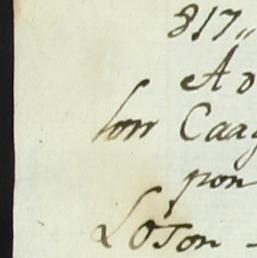 817,,
A o
lorr Caag
pon
Loson -